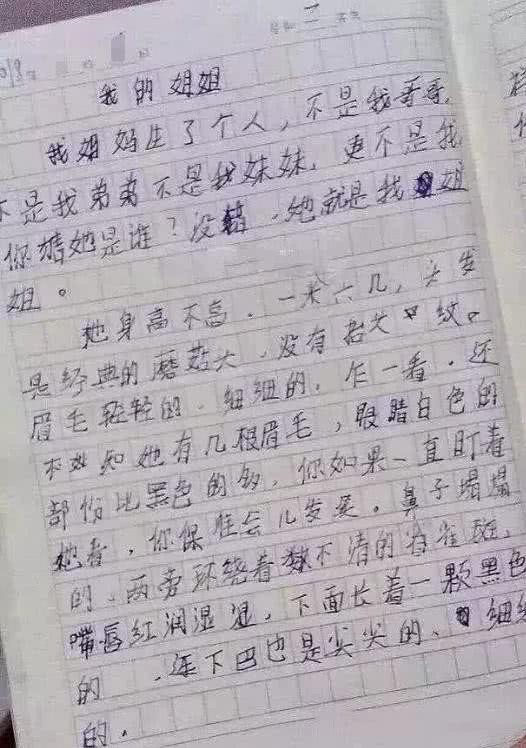 我的姐姐
我妈妈生了个人，不是我哥哥，
不是我弟弟不是我妹妹，更不是我
你猜她是谁？没错，她就是我姐
姐。
她身高不高，一米六几，头发
是经典的蘑菇头，没有抬头纹。
眉毛轻轻的，细细的，乍一看，还
不知她有几根眉毛，眼睛白色的
部份比黑色的多，你如果一直盯着
她看，你保准会儿发晕。鼻子塌塌
的，两旁环绕着数不清的右雀斑，
嘴唇红润湿湿，下面长着一颗黑色
的，连下巴也是尖尖的、细细
的．